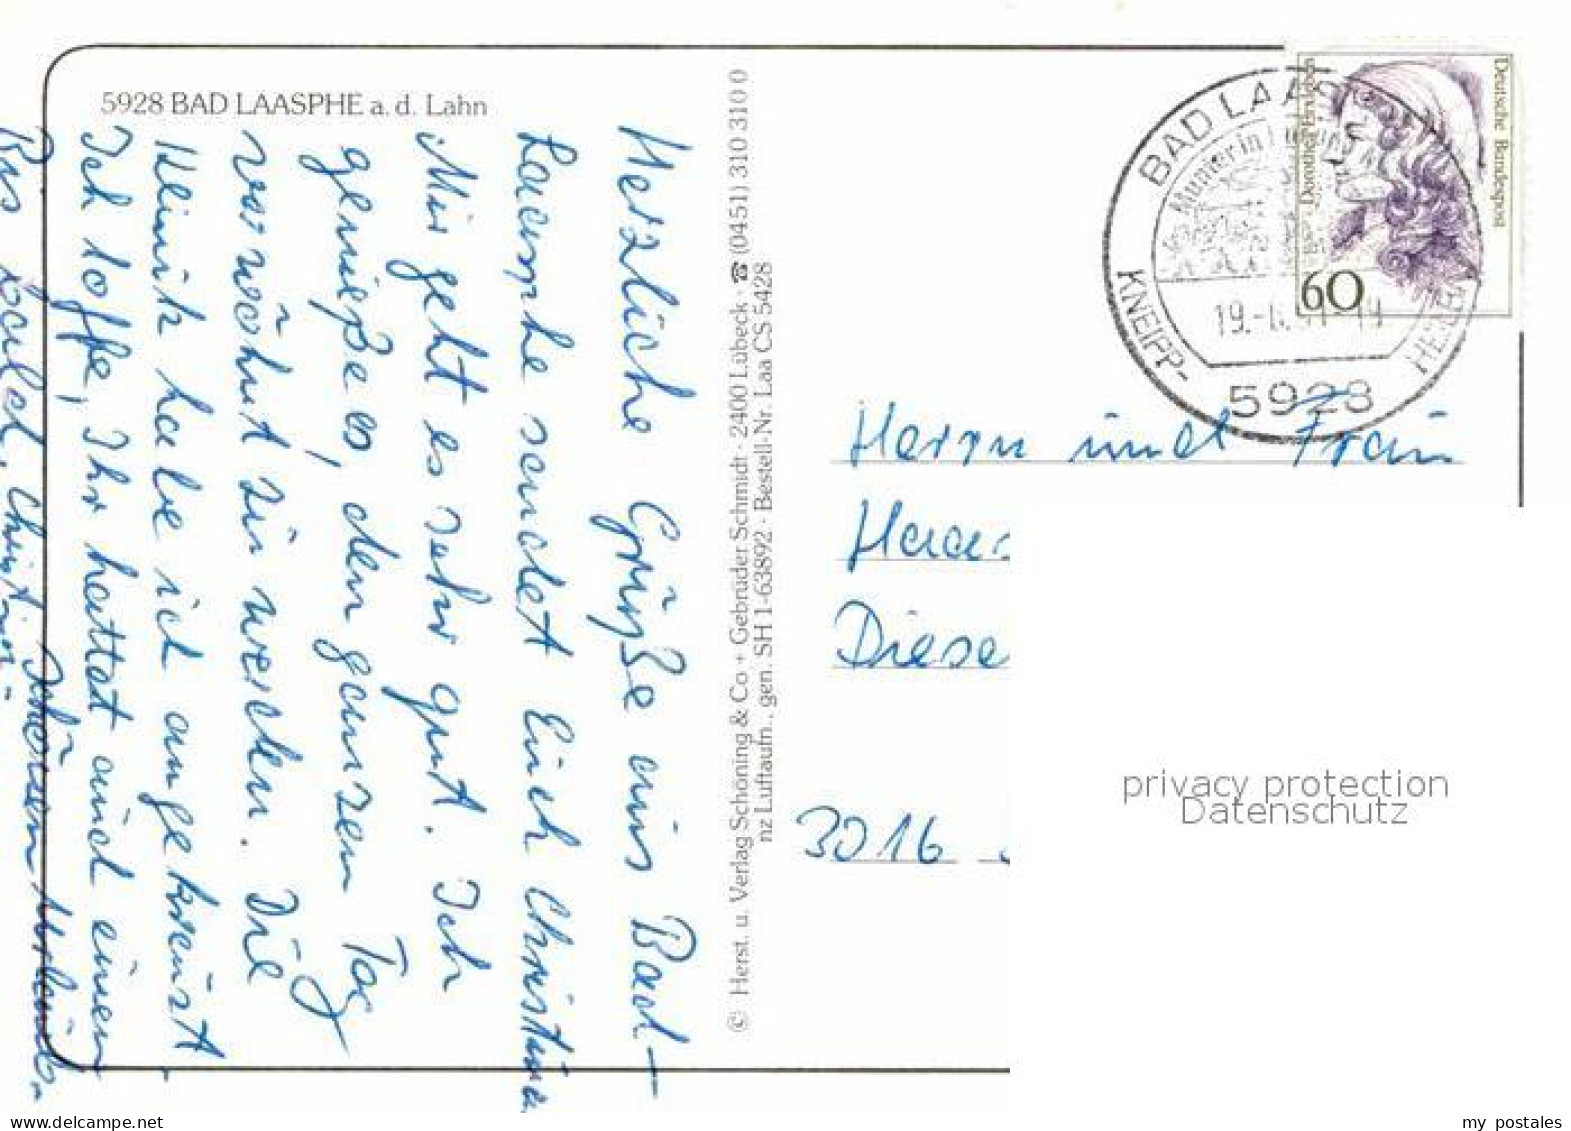 5928 BAD LAASPHE a. d. Lahn
Herzliche Grüße aus Bad-
Laasphe sendet Euch Christina
Mir geht es sehr gut. Ich
genieße es, den ganzen Tag
verwöhnt zu werden. Die
Klinik habe ich angekreuzt
Ich hoffe, Ihr hattet auch einen
schönen Urlaub.
Bis bald, Christina
© Herst. u. Verlag Schöning & Co + Gebrüder Schmidt · 2400 Lübeck · ☎ (0451) 310 310 0
nz Luftaufn., gen. SH 1-63892 · Bestell-Nr. Laa CS 5428
BAD LAAS
Munter in
19.-
KNEIPP-
HEILB
5928
Deutsche Bundespost
Dorothea Erxleben
60
Herrn und Frau
Haas
Diese
3016
privacy protection
Datenschutz
my postales